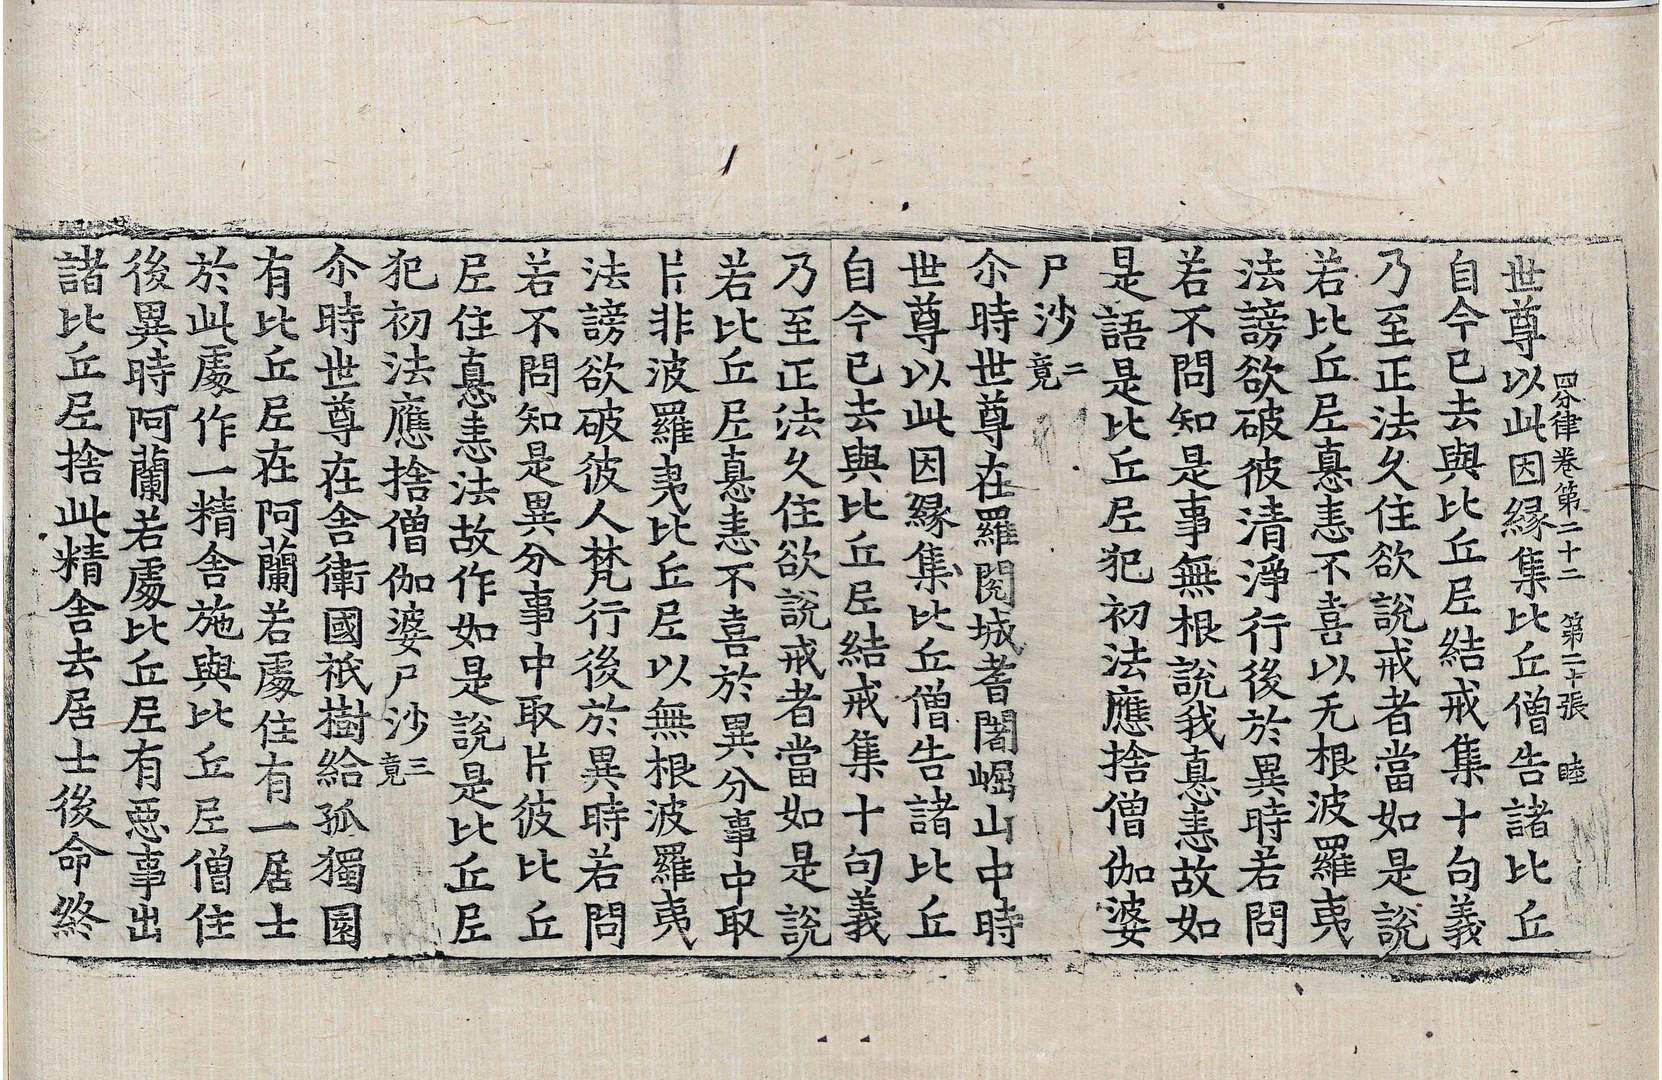 四分律卷第二十二　第二十張　睦
世尊以此因縁集比丘僧告諸比丘
自今已去與比丘𡰱結戒集十句義
乃至正法久住欲說戒者當如是說
若比丘𡰱瞋恚不喜以无根波羅夷
法謗欲破彼清淨行後於異時若問
若不問知是事無根說我瞋恚故如
是語是比丘𡰱犯初法應捨僧伽婆
尸沙二竟
尒時世尊在羅閱城耆闍崛山中時
世尊以此因縁集比丘僧告諸比丘
自今已去與比丘𡰱結戒集十句義
乃至正法久住欲說戒者當如是說
若比丘𡰱瞋恚不喜於異分事中取
片非波羅夷比丘𡰱以無根波羅夷
法謗欲破彼人梵行後於異時若問
若不問知是異分事中取片彼比丘
𡰱住瞋恚法故作如是說是比丘𡰱
犯初法應捨僧伽婆尸沙三竟
尒時世尊在舍衛國祇樹給孤獨園
有比丘𡰱在阿蘭若處住有一居士
於此處作一精舍施與比丘𡰱僧住
後異時阿蘭若處比丘𡰱有惡事出
諸比丘𡰱捨此精舍去居士後命終